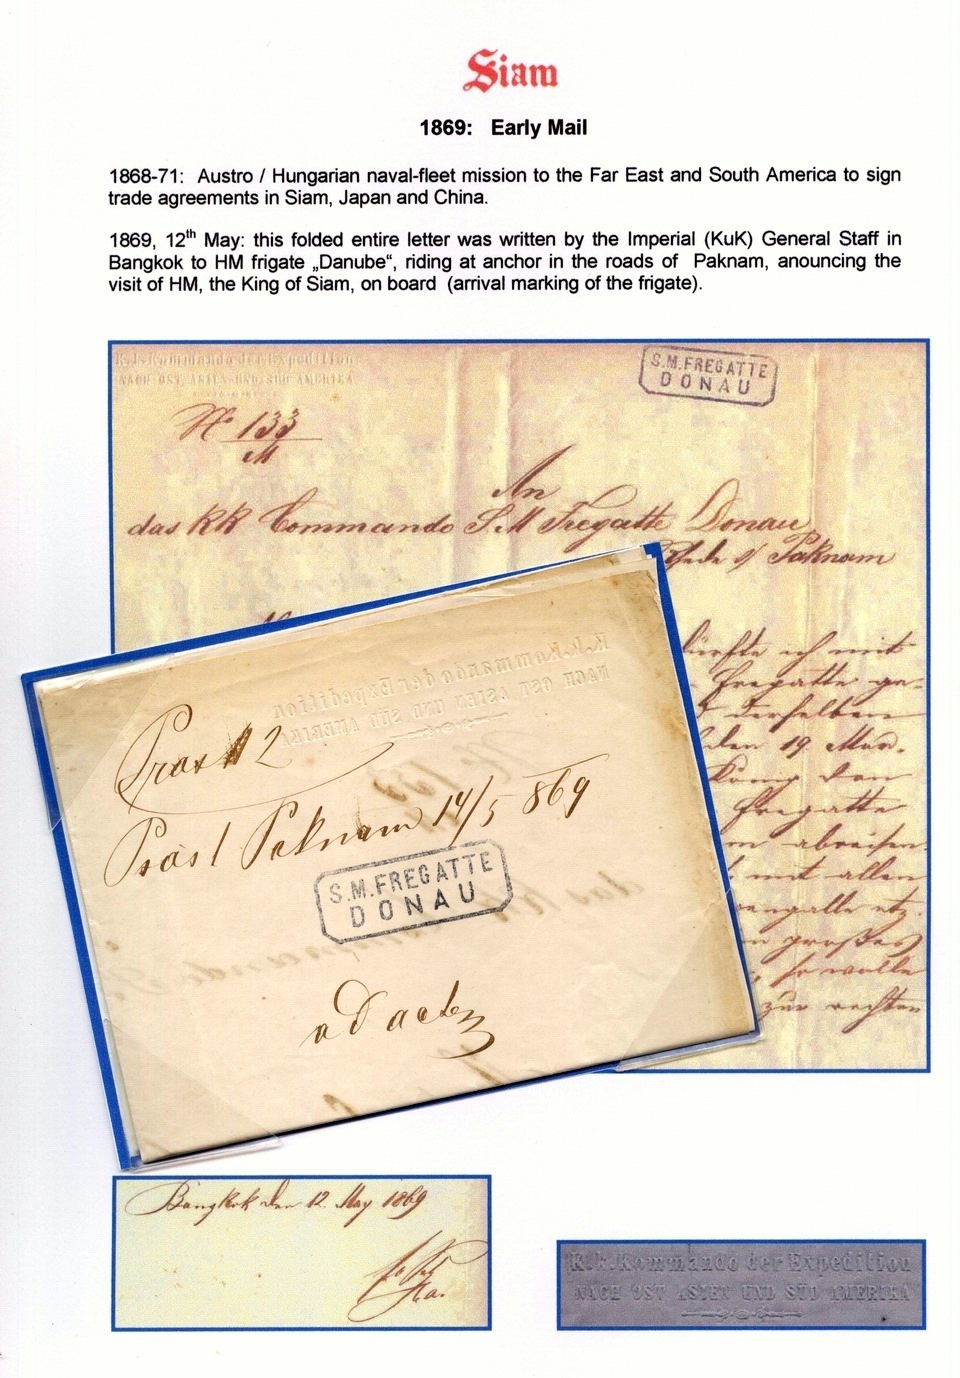 Siam
1869: Early Mail
1868-71: Austro / Hungarian naval-fleet mission to the Far East and South America to sign
trade agreements in Siam, Japan and China.
1869, 12th May: this folded entire letter was written by the Imperial (KuK) General Staff in
Bangkok to HM frigate „Danube“, riding at anchor in the roads of Paknam, anouncing the
visit of HM, the King of Siam, on board (arrival marking of the frigate).
K.k. Kommando der Expedition
NACH OST, ASIEN UND SÜD AMERIKA
S.M.FREGATTE
DONAU
No 133
An
das KK Commando S.M Fregatte Donau
Rhede v/ Paknam
dürfte ich mit
Fregatte ge-
derselben
den 19. May.
König den
Fregatte
abreisen
mit allen
etz.
großes
so wolle
zur rechten
K.k. Kommando der Expedition
NACH OST ASIEN UND SÜD AMERIKA
Praes 2
Praes / Paknam 14/5 869
S.M.FREGATTE
DONAU
ad acta
Bangkok den 12. May 1869
K.k. Kommando der Expedition
NACH OST ASIEN UND SÜD AMERIKA